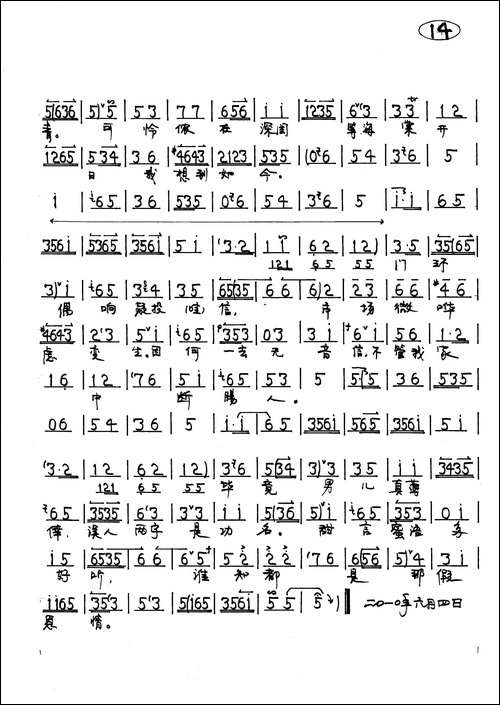 14
5i636 | 5) 5 | 5 3 | 7 7 | 6 56 | i i | 1235 | 6 3 | 3 3 | 1 2
青。 可 怜 侬 在 深 闺 等 海 棠 开
1265 | 5 34 | 3 6 | #4643 | 2123 | 535 | (0 6 | 5 4 | 3 6 | 5
日 我 想 到 如 今。
i | 65 | 3 6 | 535 | 0 6 | 5 4 | 3 6 | 5 | i·i | 6 5
356i | 5365 | 356i | 5 i | 3·2 | 1 1 | 6 2 | 1 2) | 3·5 | 35i65
121 65 55 门 环
3) i | 65 | 3 4 | 3 5 | 65i35 | 6 6 | 6) 2 | 2 3 | 6 6 | #4 6
偶 响 疑 投 信, 市 场 微 哗
#4643 | 2 3 | 5 i | 65 | 353 | 0 3 | 3 i | 6 i | 5 6 | 1·2
虑 变 生。因 何 一去 无 音 信,不 管我 家
1 6 | 1 2 | 7 6 | 5 i | 65 | 5 3 | 5 | 5·5 | 3 6 | 535
中 断 肠 人。
0 6 | 5 4 | 3 6 | 5 | i·i | 6 5 | 356i | 565 | 356i | 5 i
3·2 | 1 2 | 6 2 | 1 2) | 3 6 | 5i34 | 3) 3 | 3 5 | i i | 3435
121 65 55 毕 竟 男 儿 真 薄
65 | 3535 | 6 3 | 3 3 | 5i36 | 5) i | 65 | 353 | 0 i
倖, 误人 两字 是 功 名。 甜 言 蜜语 多
i 5 | 6535 | 6 6 | 6 5 | 5 2 | 2 2 | 7 6 | 6i56 | 5) 4 | 3 i
好 听, 谁 知 都 是 那 假
ii65 | 353 | 5 3 | 5i65 | 356i | 5 5 | 5 ) 二〇一〇年六月四日
恩 情。